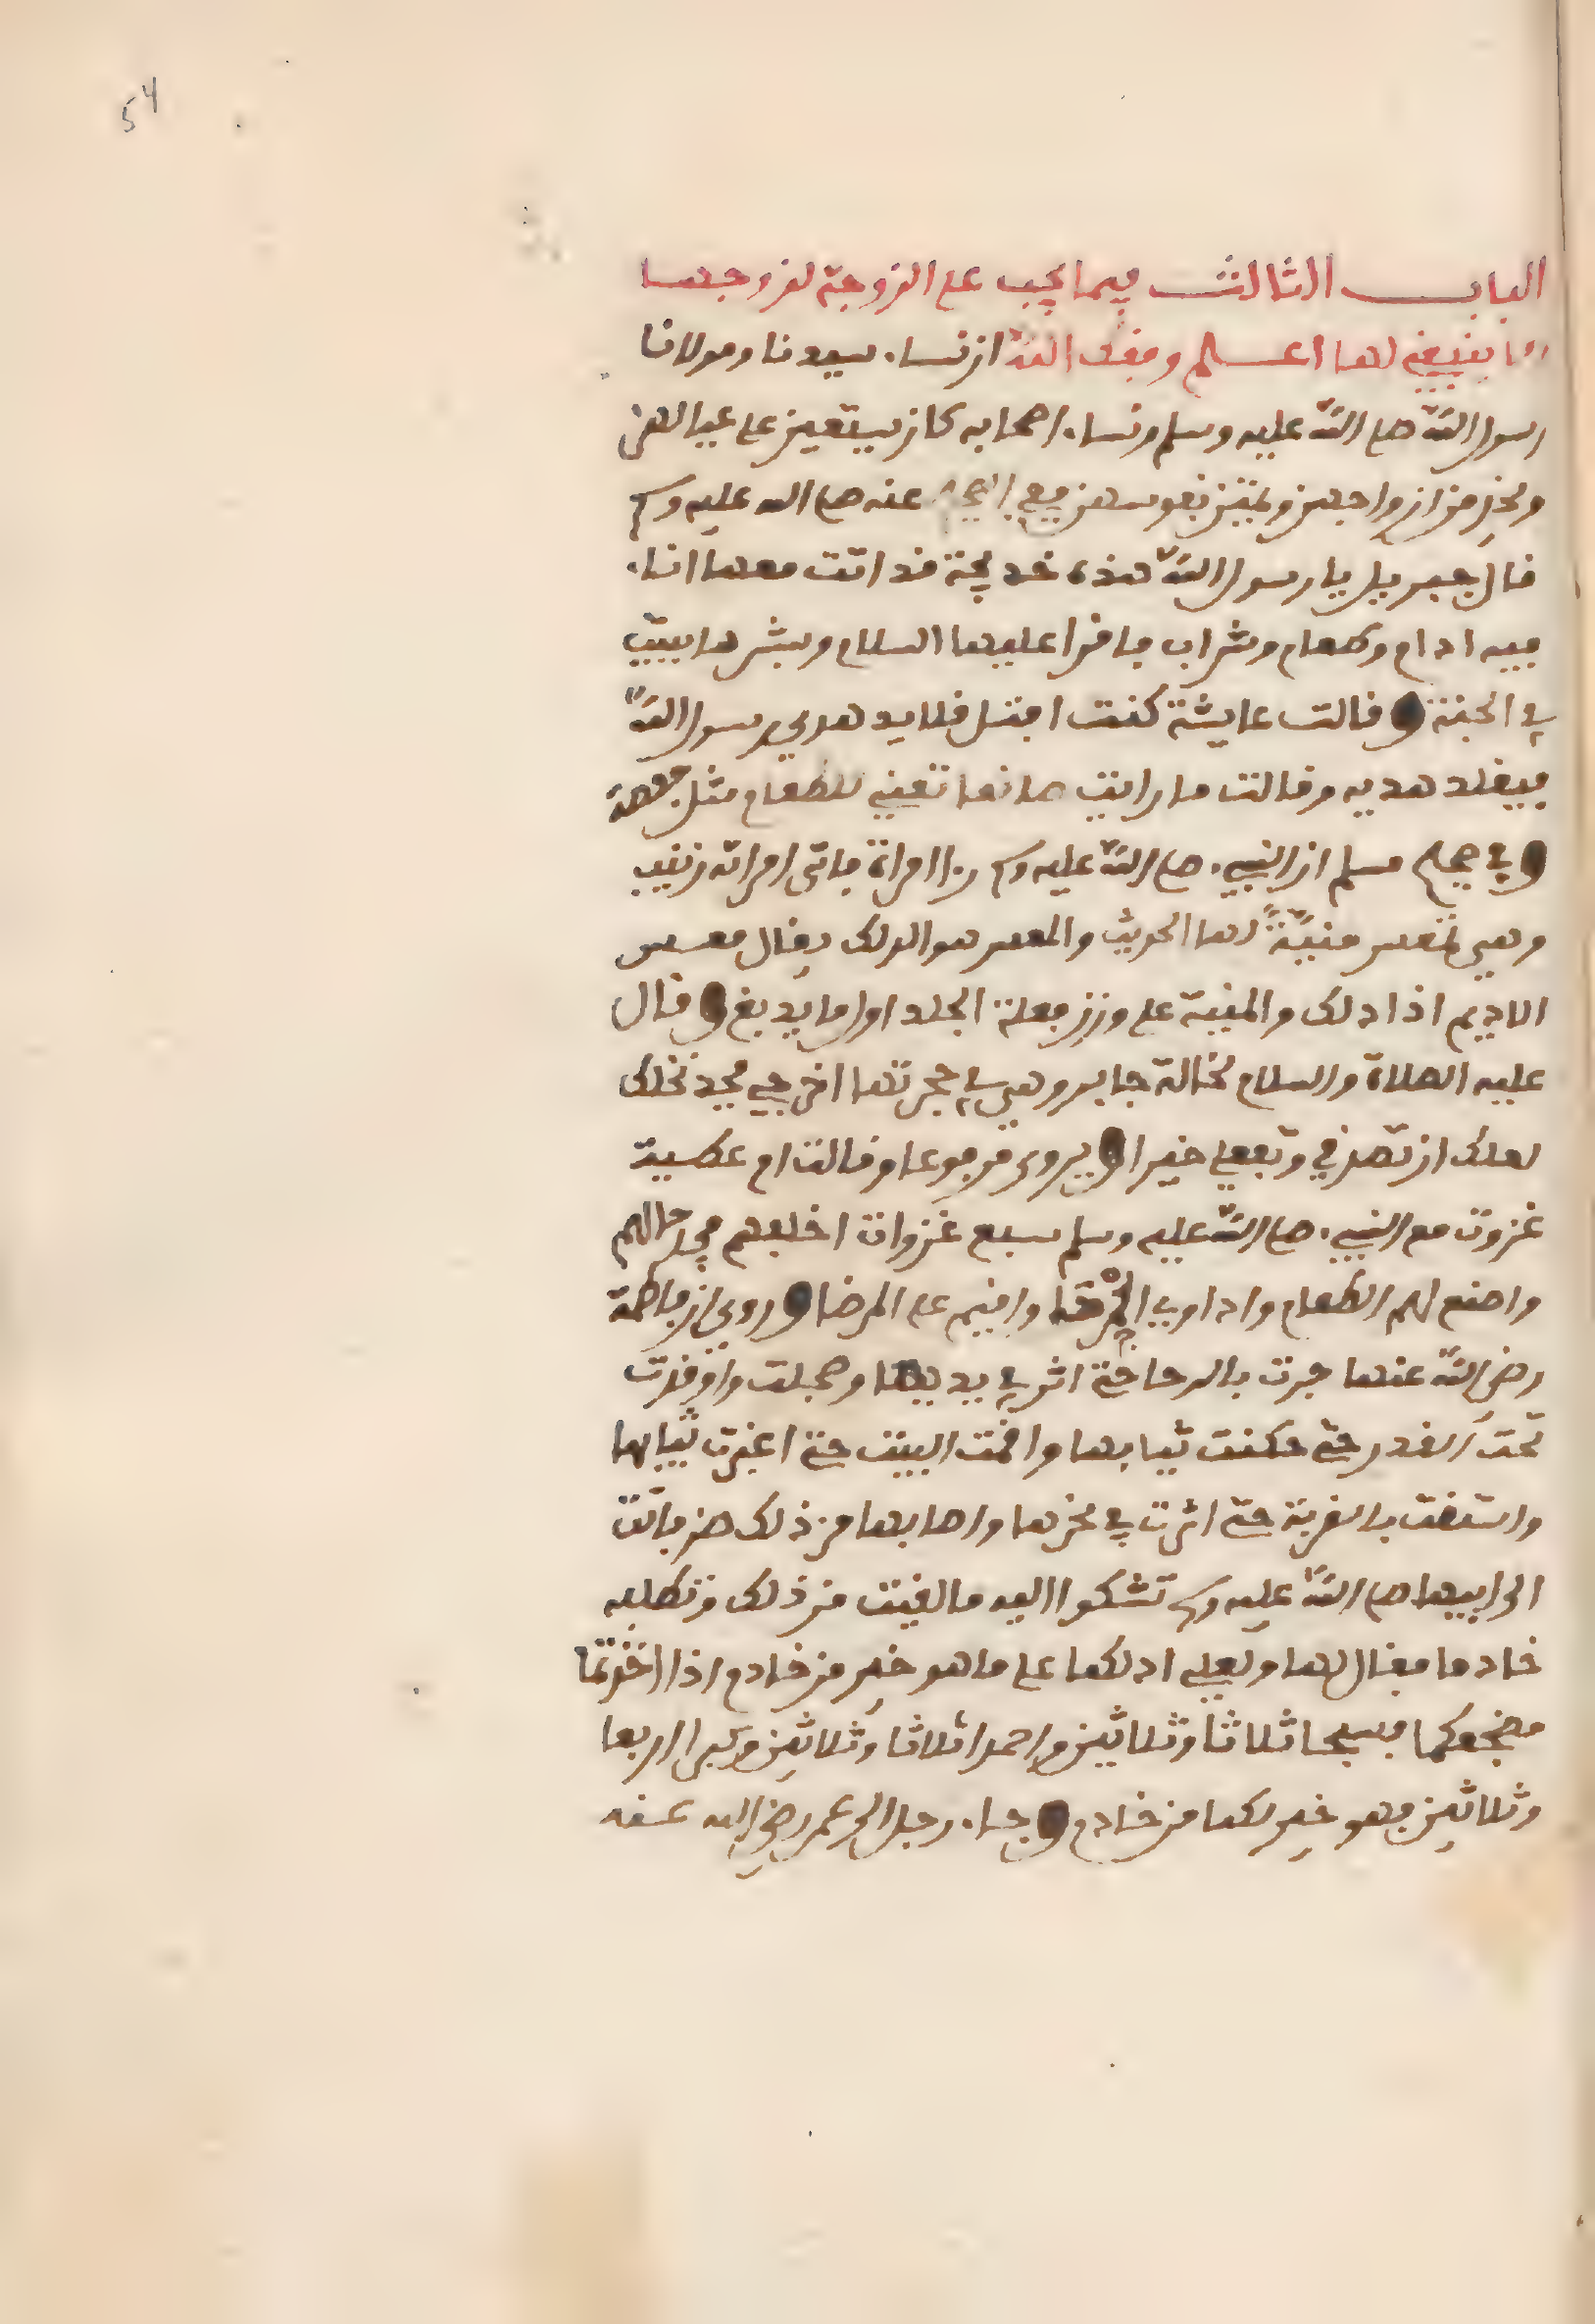 54
الباب الثالث فيما يجب على الزوجة لزوجها
وما ينبغي لها اعلم وفقك الله ان نساء سيدنا ومولانا
رسول الله صلى الله عليه وسلم ونساء اصحابه كان يستعين على عيالهن
ويخدمن ازواجهن ويمتهن نفوسهن ففي عنه صلى الله عليه وسلم
قال جبريل يا رسول الله هذه خديجة قد اتت معها اناء
فيه ادام وطعام وشراب فاقرا عليها السلام وبشرها ببيت
في الجنة وقالت عايشة كنت افتل قلايد هدي رسول الله
فيقلد هديه وقالت ما رايت صانعا تعني للطعام مثل حفصة
وفي صحيح مسلم ان النبي صلى الله عليه وسلم راا امراة فاتى امراته زينب
وهي تمعس منيئة لها الحديث والمعس هو الدلك يقال معس
الاديم اذا دلك والمنيئة على وزن فعلة الجلد اول ما يدبغ وقال
عليه الصلاة والسلام لخالة جابر وهي في حجرتها اخرجي فجد نخلك
لعلك ان تصدقي وتفعلي خيرا ويروى مرفوعا وقالت ام عطية
غزوت مع النبي صلى الله عليه وسلم سبع غزوات اخلفهم في رحالهم
واصنع لهم الطعام واداوي الجرحى واقيم على المرضا وروي ان فاطمة
رضي الله عنها جرت بالرحا حتى اثر في يديها وعجلت واوقدت
تحت القدر حتى دكنت ثيابها واقمت البيت حتى اغبرت ثيابها
واستقت بالقربة حتى اثرت في نحرها واصابها من ذلك ضر فاتت
الى ابيها صلى الله عليه وسلم تشكوا اليه ما لقيت من ذلك وتطلبه
خادما فقال لها ولعلي ادلكما على ما هو خير من خادم اذا اخذتما
مضجعكما فسبحا ثلاثا وثلاثين واحمدا ثلاثا وثلاثين وكبرا اربعا
وثلاثين فهو خير لكما من خادم وجاء رجل الى عمر رضي الله عنه